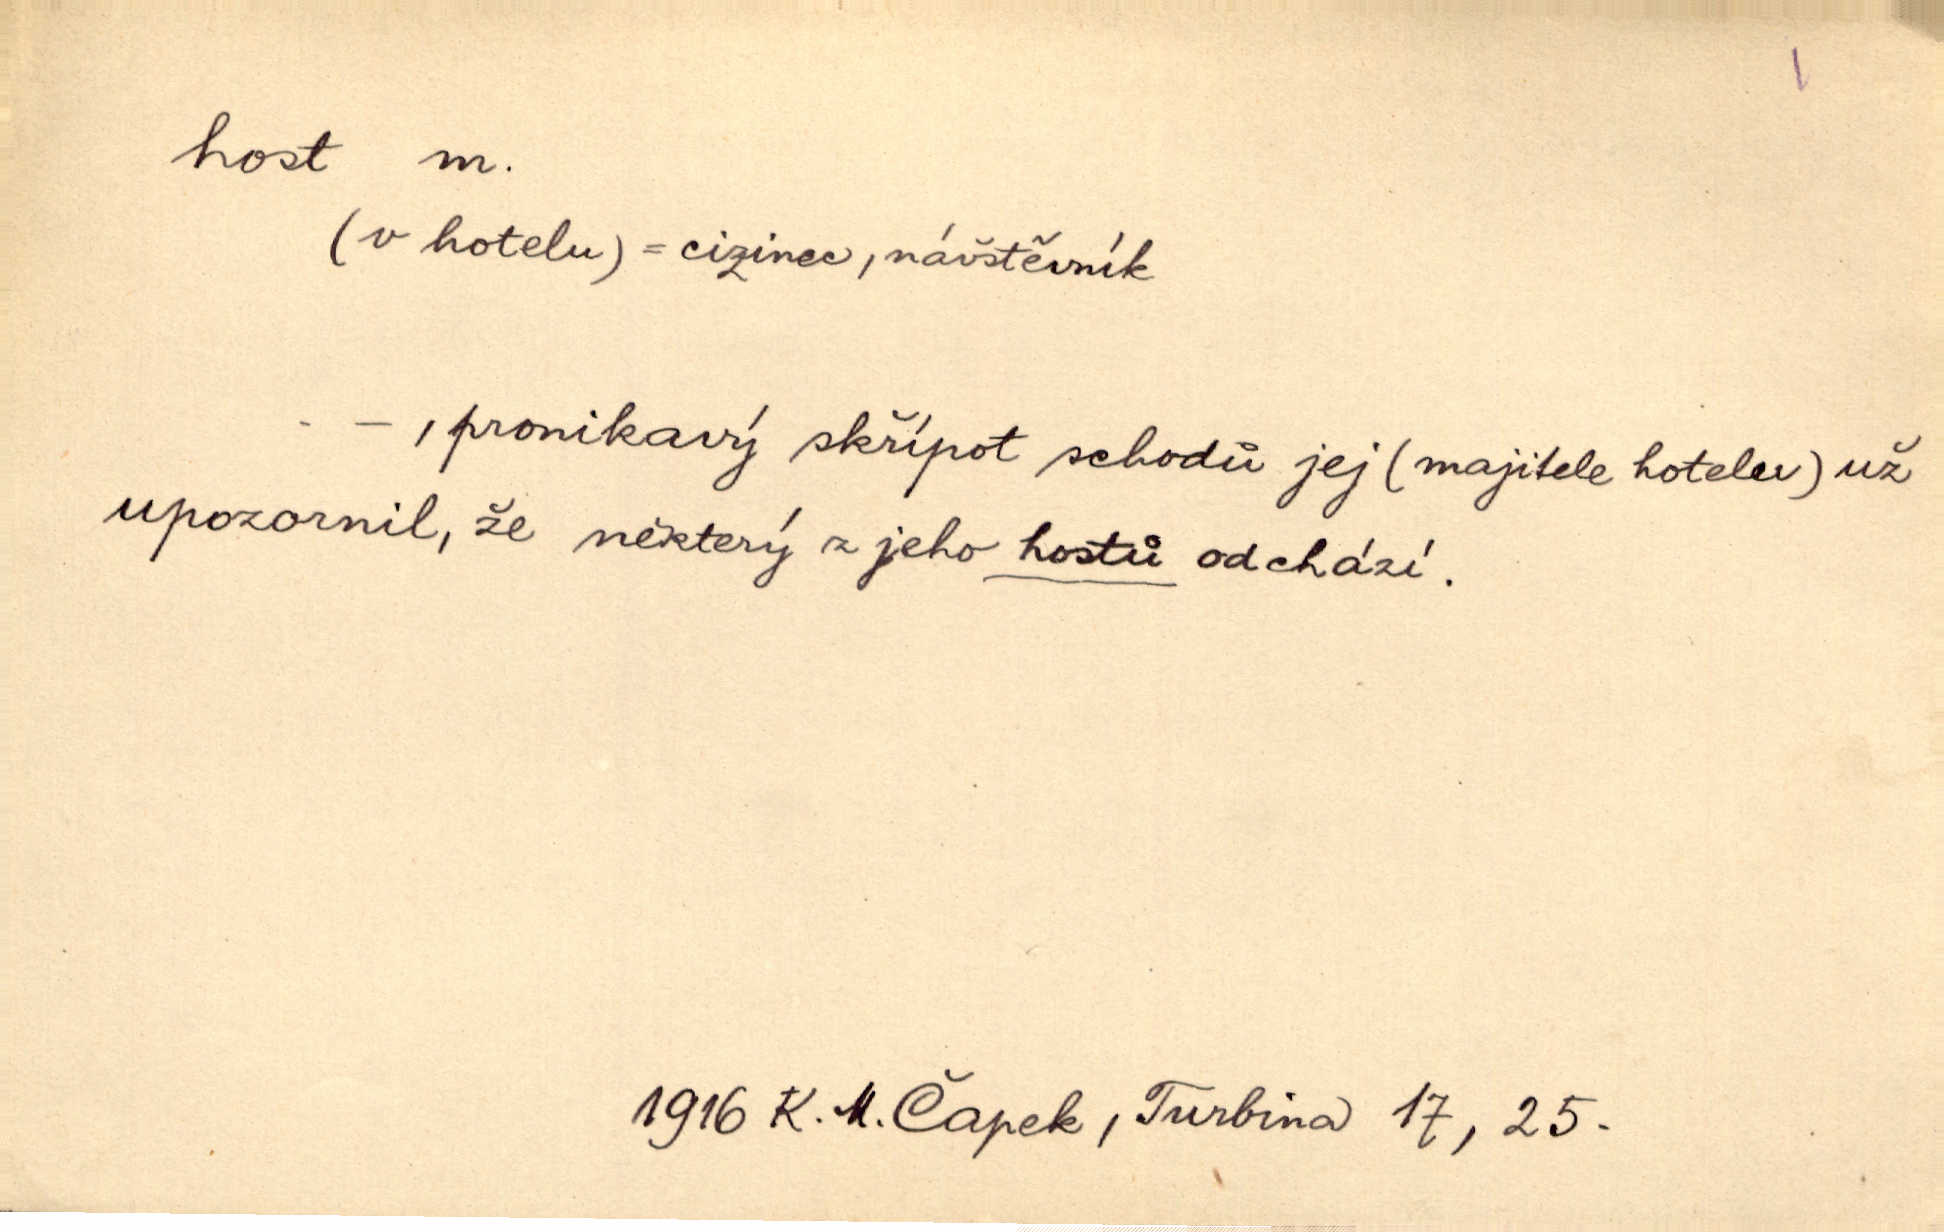 host m.
(v hotelu) = cizinec, návštěvník
- – , pronikavý skřípot schodů jej (majitele hotelu) už
upozornil, že některý z jeho hostů odchází.
1916 K. M. Čapek, Turbina 17, 25.